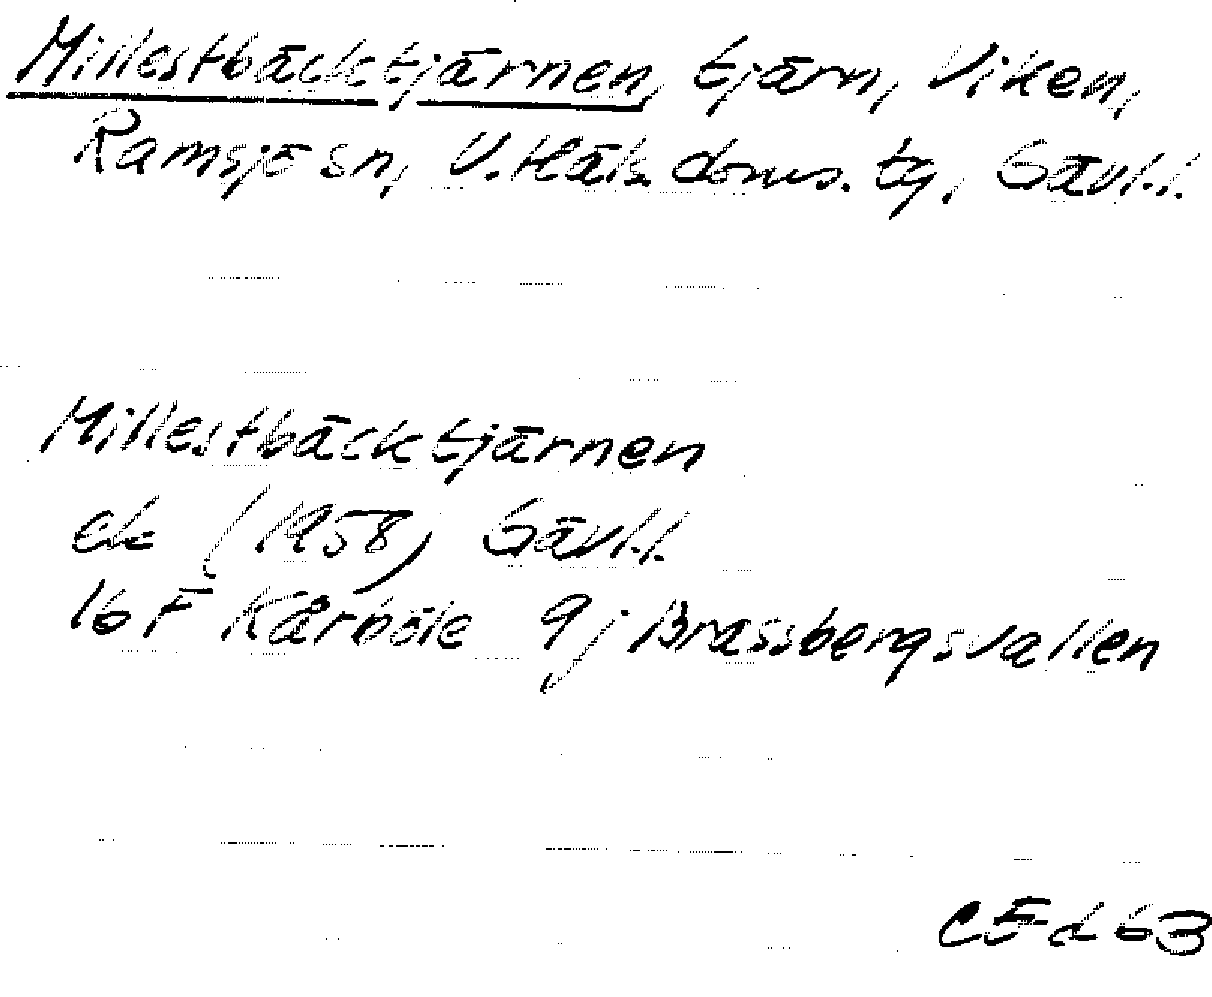 Millestbäcktjärnen, tjärn, Viken,
Ramsjö sn, V. Häls. doms. tg, Gävl.l.
Millestbäcktjärnen
ek (1958) Gävl.l.
16 F Kårböle 9j Brassbergsvallen
63